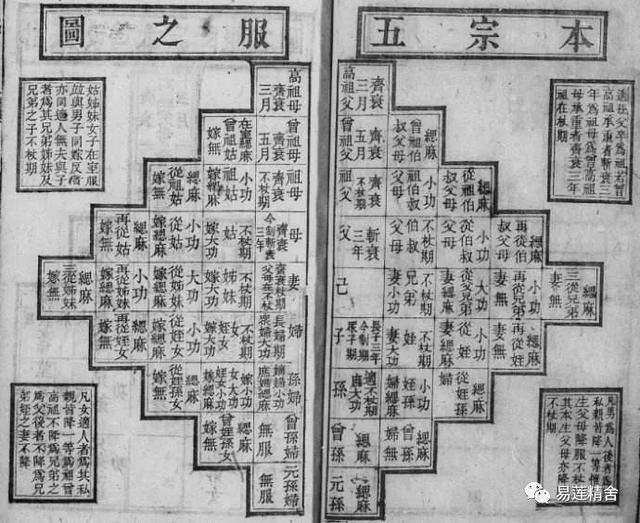 本宗五
服之圖
父卒為祖若曾
高祖承重者齊衰三
年為祖母為曾高祖
母承重者齊衰三年
祖在杖期
姑姊妹女子在室服
並與男子同嫁反者
亦同適人無夫與子
者為其兄弟姊妹及
兄弟之子不杖期
齊衰三月
高祖父
三月
高祖母
緦麻
曾祖伯叔父母
齊衰五月
曾祖父
齊衰五月
曾祖母
在室緦麻
曾祖姑
嫁無
緦麻
從祖伯叔父母
小功
祖伯叔父母
齊衰不杖期
祖父
齊衰不杖期
祖母
小功
祖姑
嫁緦麻
緦麻
從祖姑
嫁無
緦麻
再從伯叔父母
小功
從伯叔父母
不杖期
伯叔父母
斬衰三年
父
齊衰
今制斬衰三年
母
不杖期
姑
嫁大功
小功
從姑
嫁緦麻
緦麻
再從姑
嫁無
緦麻
三從兄弟
妻無
小功
再從兄弟
妻無
大功
從父兄弟
妻緦麻
不杖期
兄弟
妻小功
己
齊衰杖期
父母在不杖
妻
不杖期
姊妹
嫁大功
大功
從姊妹
嫁小功
小功
再從姊妹
嫁緦麻
緦麻
三從姊妹
嫁無
緦麻
再從姪
妻無
小功
從姪
妻緦麻
不杖期
姪
妻大功
長子三年
今制期
眾子期
子
長婦期
眾婦大功
婦
不杖期
姪女
嫁大功
小功
從姪女
嫁緦麻
緦麻
再從姪女
嫁無
緦麻
從姪孫
妻無
小功
姪孫
婦緦麻
適不杖期
庶大功
孫
適婦小功
庶婦緦麻
孫婦
小功
姪孫女
嫁緦麻
緦麻
從姪孫女
嫁無
緦麻
曾姪孫
婦無
緦麻
曾孫
無服
曾孫婦
緦麻
曾姪孫女
嫁無
緦麻
元孫
無服
元孫婦
凡男為人後者為
私親皆降一等惟
生父母降服不杖
其本生父母亦降
不杖期
凡女適人者為其私
親皆降一等惟祖曾
高祖不降為兄弟之
為父後者不降為兄
弟姪之妻不降
易莲精舍